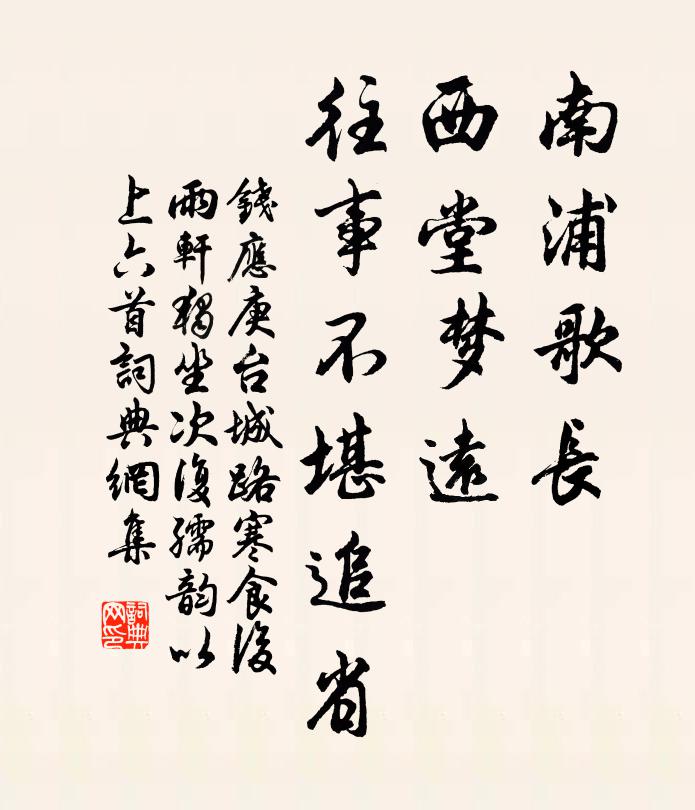 南浦歌長
西堂梦遠
往事不堪追省
錢應庚台城路寒食後
雨軒獨坐次復孺韵以
上六首詞典網集
詞典网印